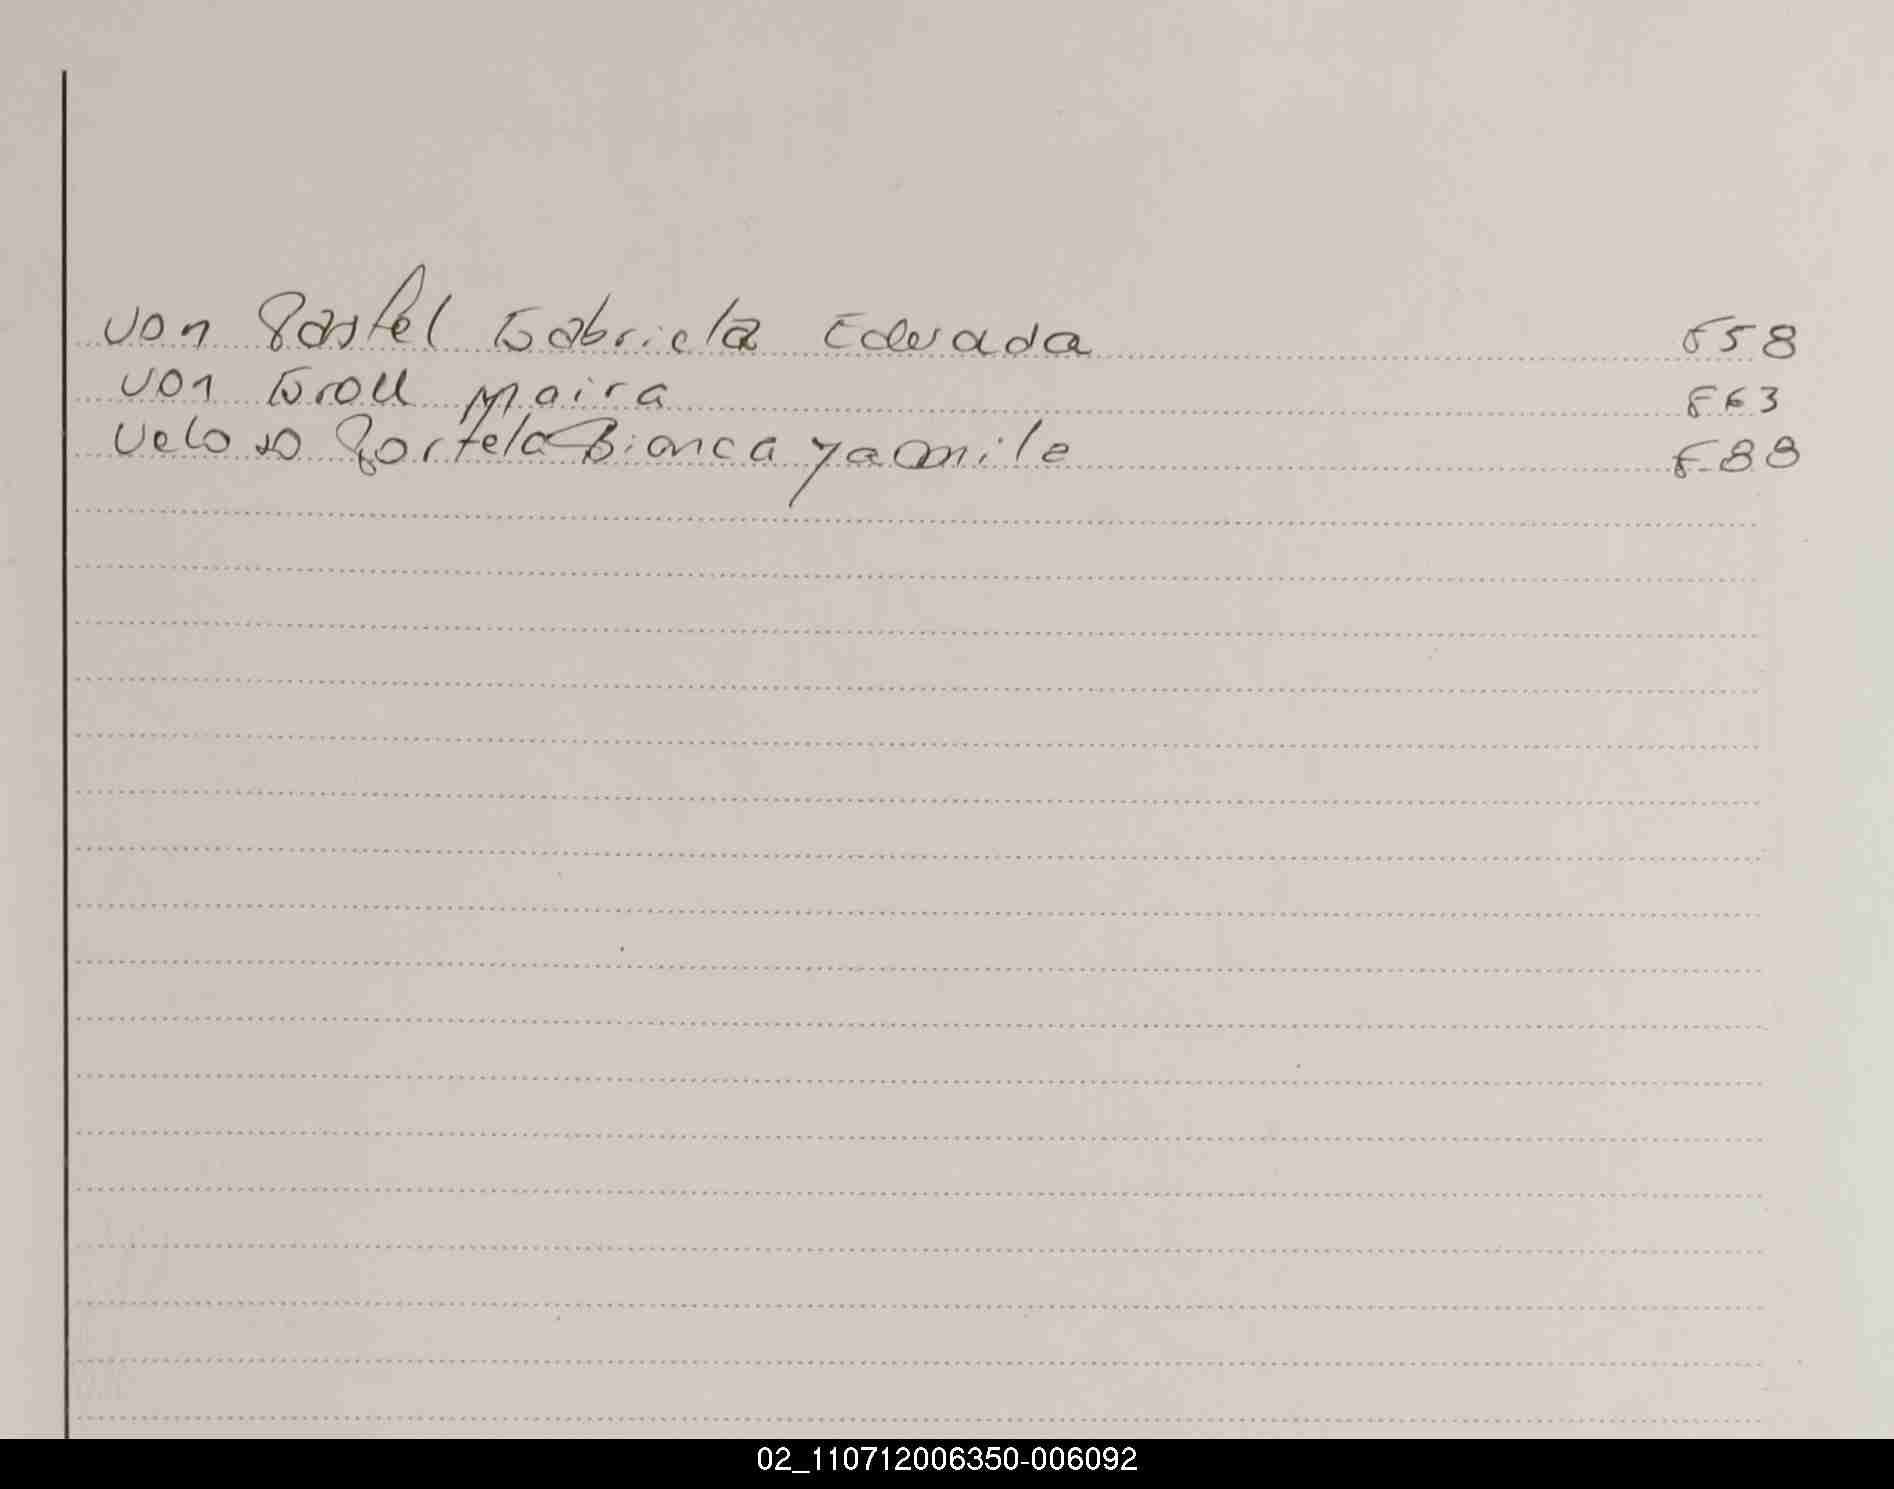 von Pastel Gabriela Eduarda 858
von Groll Maira 863
Veloso Portela Bianca Yamile 888
02_110712006350-006092